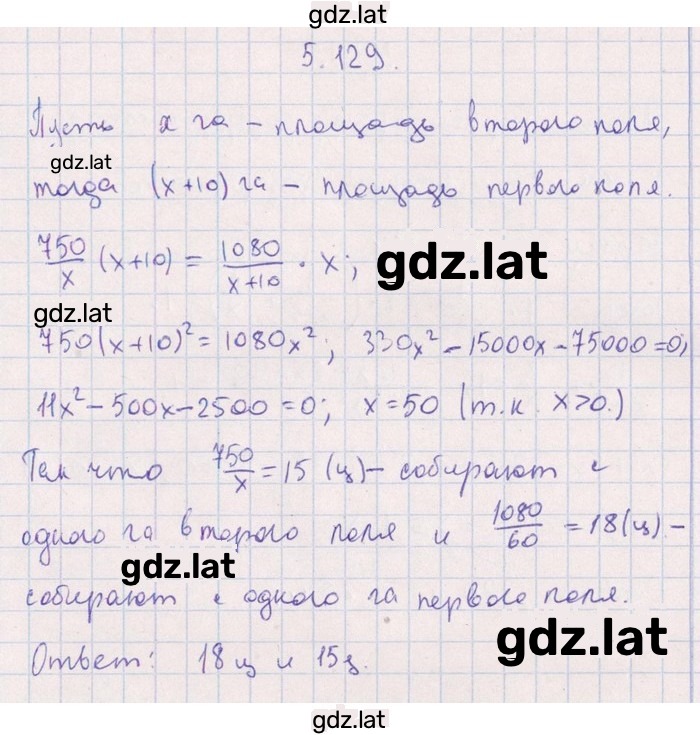 gdz.lat
5.129.
Пусть x га – площадь второго поля,
gdz.lat
тогда (x+10) га – площадь первого поля.
750/x (x+10) = 1080/(x+10) · x; gdz.lat
gdz.lat
750(x+10)² = 1080x²; 330x² – 15000x – 75000 = 0;
11x² – 500x – 2500 = 0; x = 50 (т.к. x>0.)
Так что 750/x = 15 (ц) – собирают с
одного га второго поля и 1080/60 = 18 (ц) –
gdz.lat
собирают с одного га первого поля.
gdz.lat
Ответ: 18 ц и 15 ц.
gdz.lat